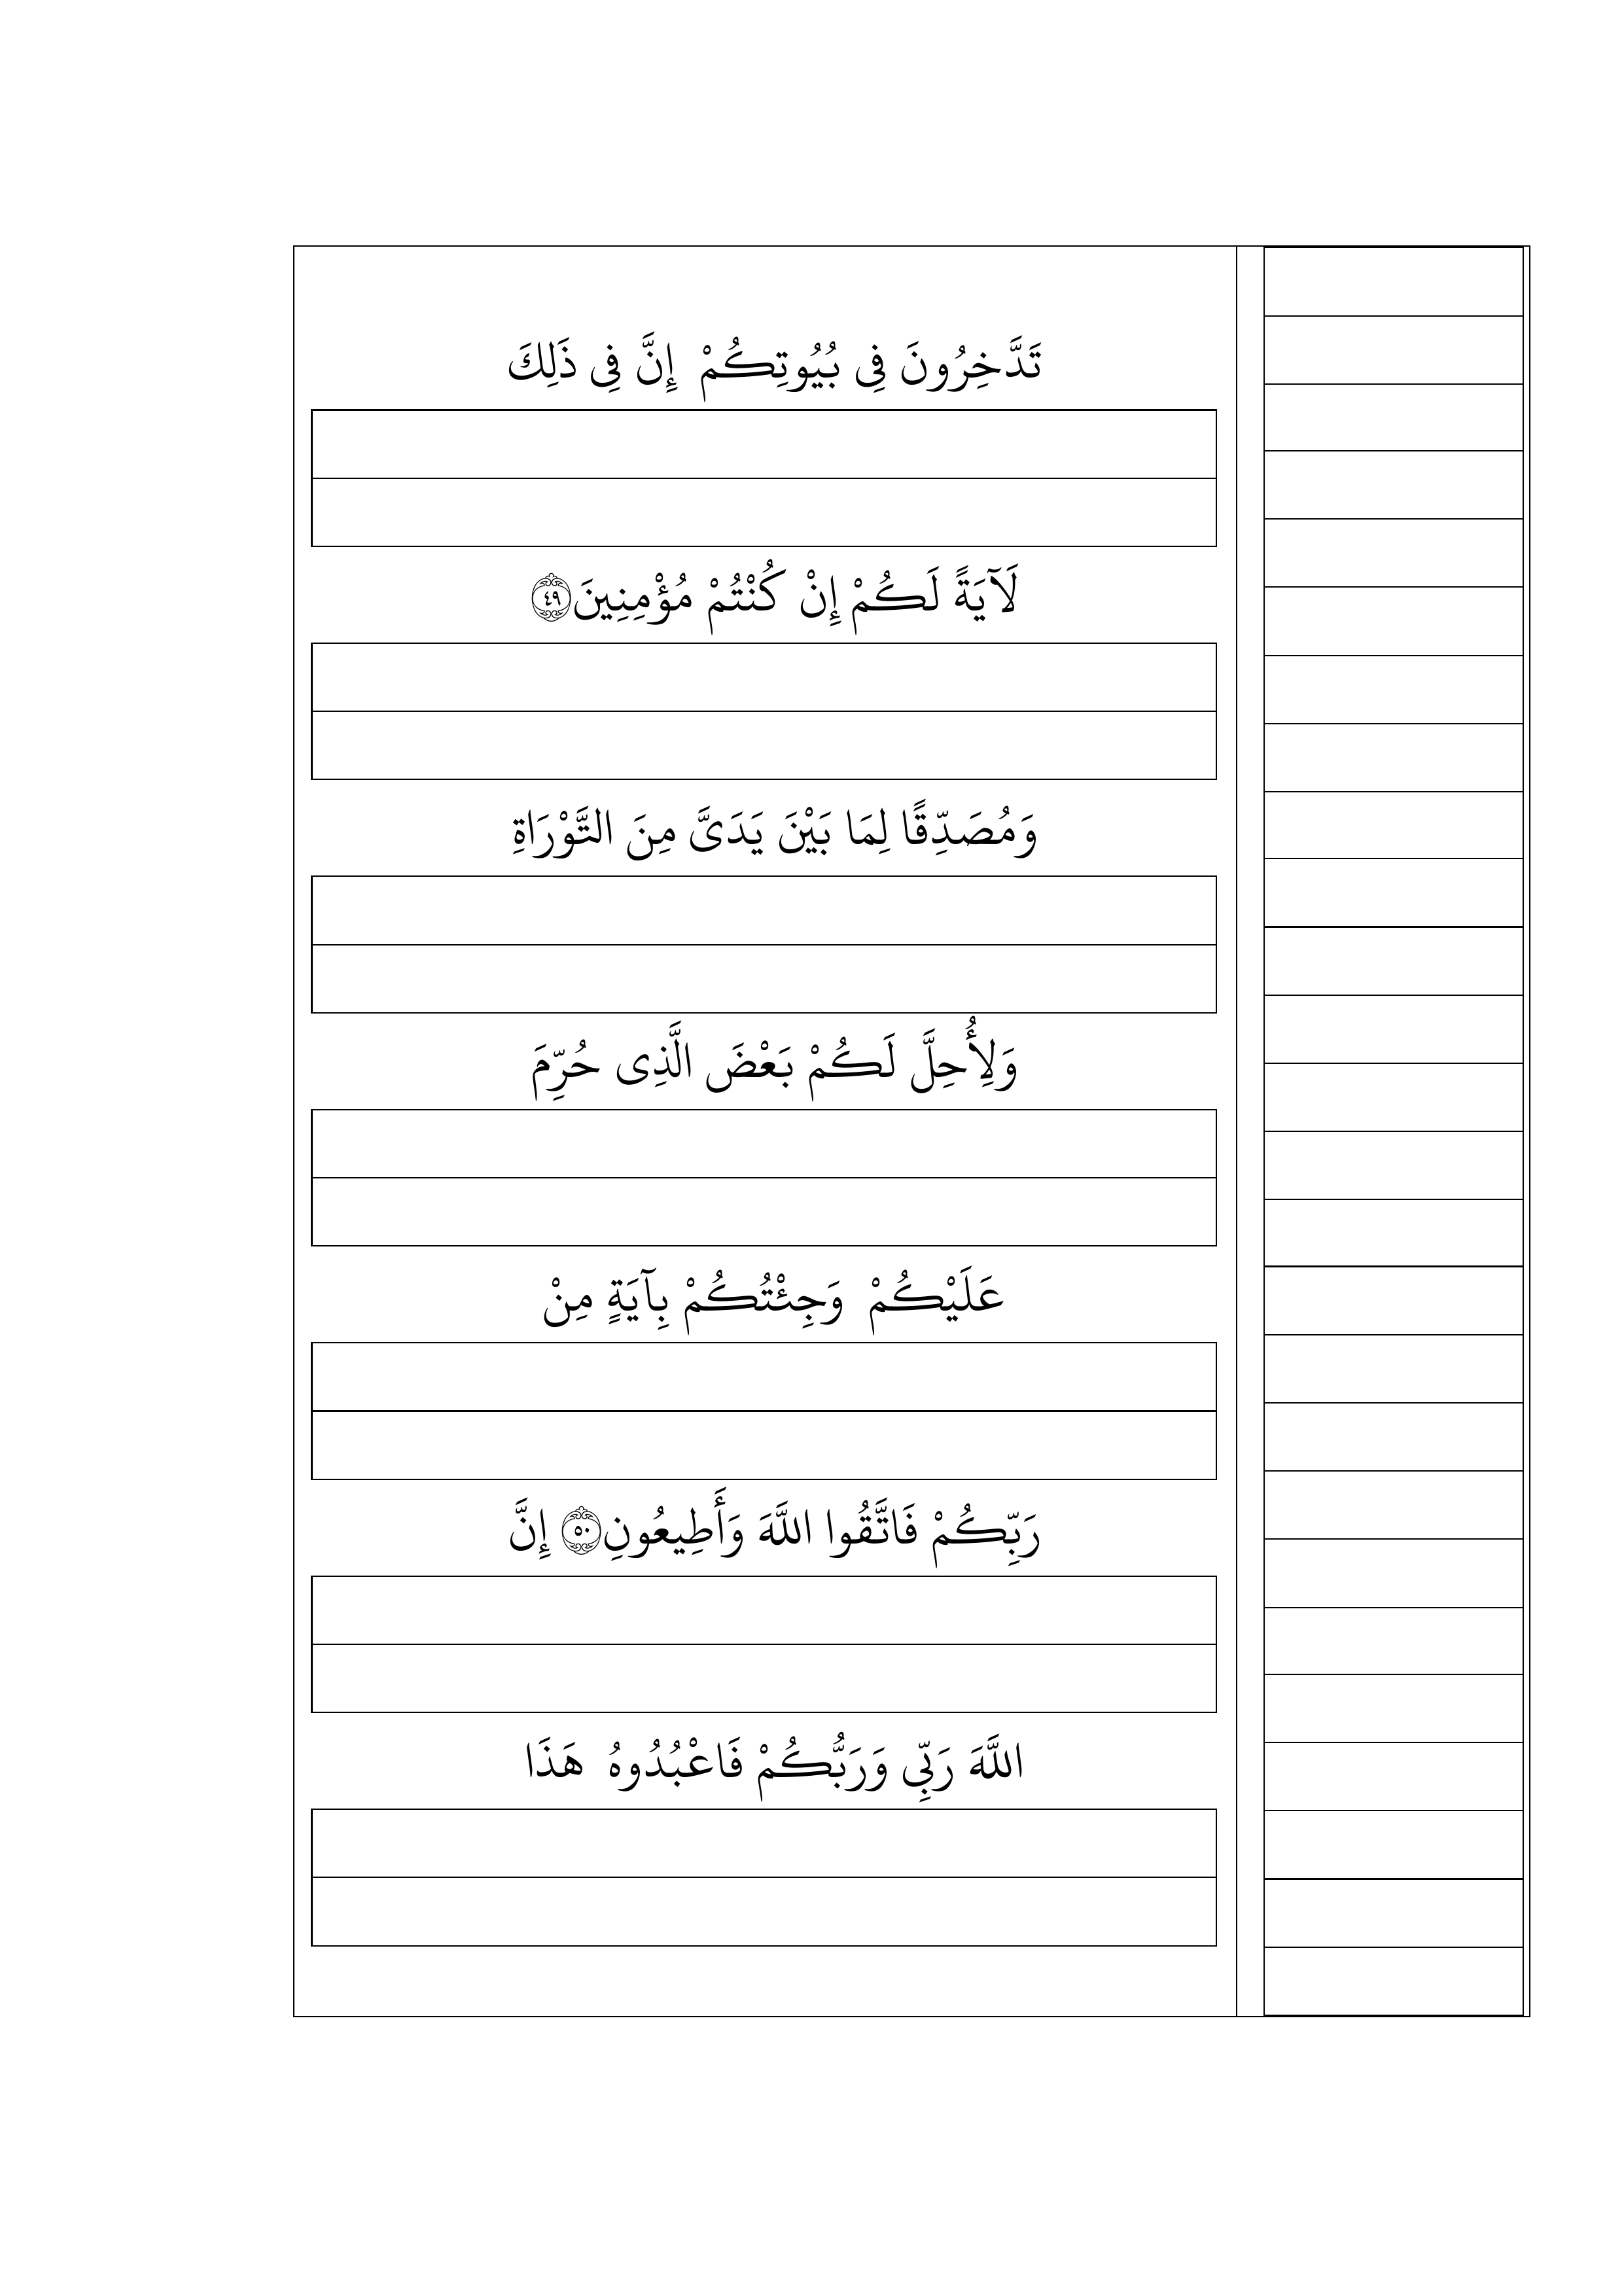 تَدَّخِرُونَ فِى بُيُوتِكُمْ إِنَّ فِى ذَلِكَ
لَآيَةً لَكُمْ إِنْ كُنْتُمْ مُؤْمِنِينَ ٤٩
وَمُصَدِّقًا لِمَا بَيْنَ يَدَىَّ مِنَ التَّوْرَاةِ
وَلِأُحِلَّ لَكُمْ بَعْضَ الَّذِى حُرِّمَ
عَلَيْكُمْ وَجِئْتُكُمْ بِآيَةٍ مِنْ
رَبِّكُمْ فَاتَّقُوا اللَّهَ وَأَطِيعُونِ ٥٠ إِنَّ
اللَّهَ رَبِّى وَرَبُّكُمْ فَاعْبُدُوهُ هَذَا